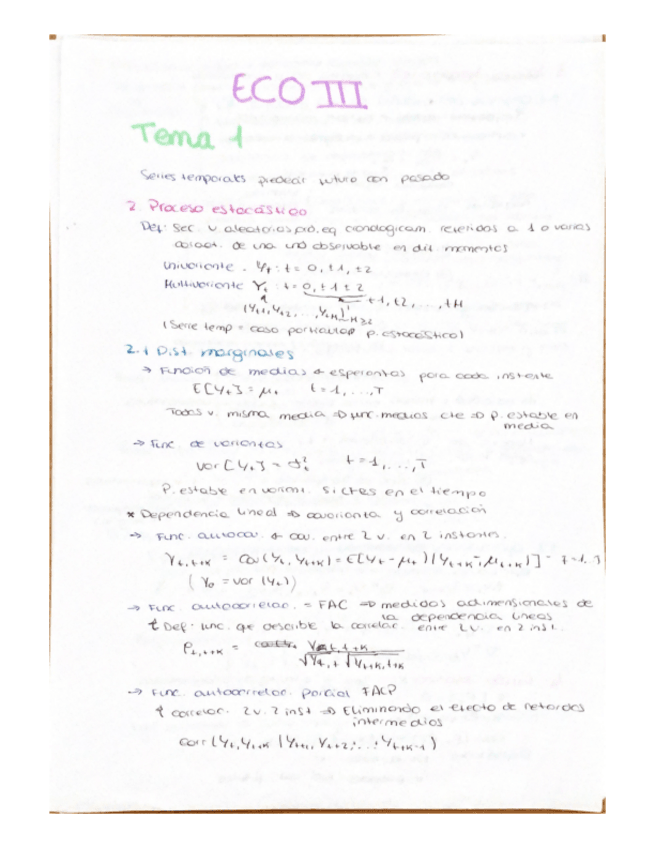 ECO III
Tema 1
Series temporales predecir futuro con pasado
2. Proceso estocástico
Def: Sec. v. aleatorias eq. cronologicam. referidos a 1 o varias
caract. de una und observable en dif. momentos
Univariante. Yt : t = 0, ±1, ±2
Multivariante Yt : t = 0, ± 1 ± 2
t1, t2, ..., tM
(Yt1, Yt2, ..., YtM)' M≥2
(Serie temp = caso particular p. estocástico)
2.1 Dist. marginales
→ Función de medias esperanzas para cada instante
E[Yt] = μt t = 1, ..., T
Todas v. misma media ⇒ func. medias cte ⇒ p. estable en
media
→ Func. de varianzas
Var[Yt] = σ²t t = 1, ..., T
P. estable en varianz. si ctes en el tiempo
* Dependencia lineal ⇒ covarianza y correlación
→ Func. autocov. cov. entre 2 v. en 2 instantes.
γt,t+k = Cov(Yt, Yt+k) = E[(Yt - μt)(Yt+k - μt+k)]
(γ0 = var (Yt))
→ Func. autocorrelac. = FAC ⇒ medidas adimensionales de
la dependencia lineal
Def: func. que describe la correlac. entre 2 v. en 2 inst.
ρt,t+k = γt,t+k
√γt,t √γt+k,t+k
→ Func. autocorrelac. parcial FACP
correlac. 2 v. 2 inst ⇒ Eliminando el efecto de retardos
intermedios
corr (Yt, Yt+k | Yt+1, Yt+2, ..., Yt+k-1)